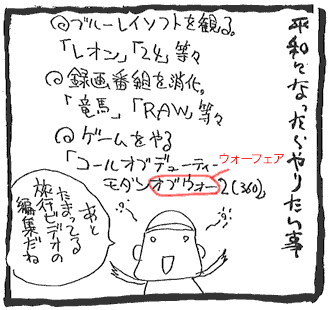 平和になったらやりたい事
◎ブルーレイソフトを観る。
「レオン」「24」等々
◎録画番組を消化。
「竜馬」「RAW」等々
◎ゲームをやる
「コールオブデューティー
モダンオブウォー2(360)」
ウォーフェア
あと
たまってる
旅行ビデオの
編集だね